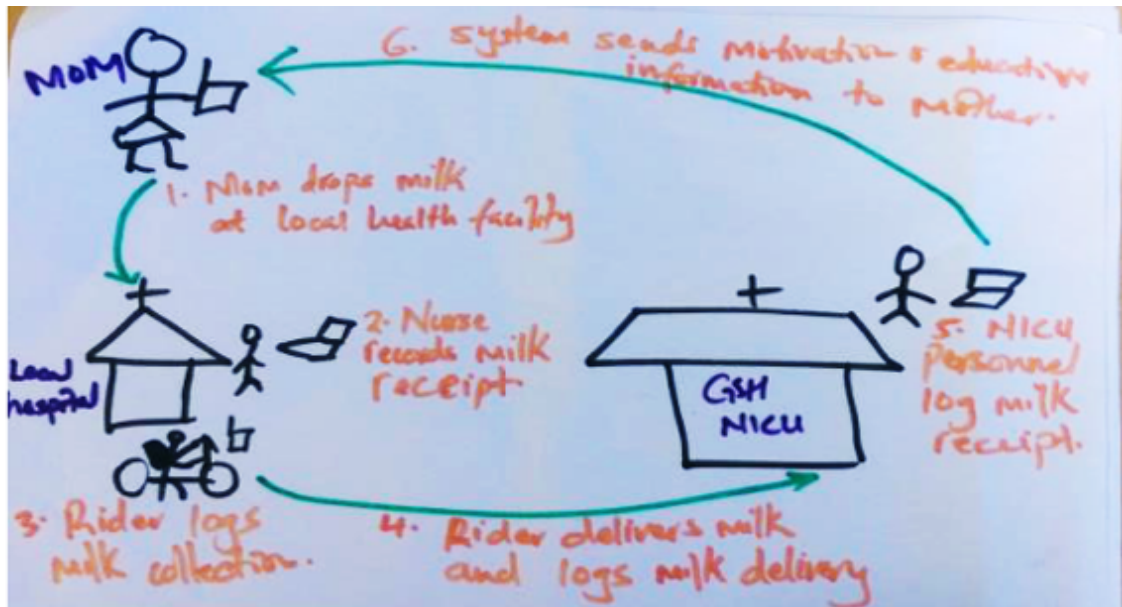 MOM
6. System sends motivation & education
information to Mother.
1. Mom drops milk
at local health facility
Local
hospital
2. Nurse
records milk
receipt
GSH
NICU
5. NICU
personnel
log milk
receipt.
3. Rider logs
milk collection.
4. Rider delivers milk
and logs milk delivery